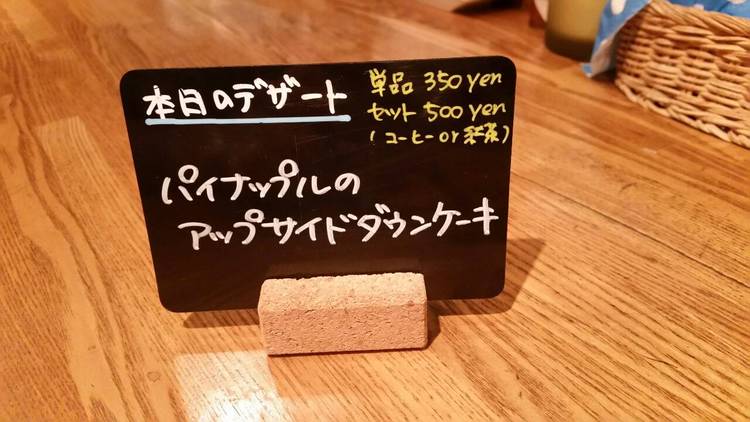 本日のデザート
単品 350 yen
セット 500 yen
(コーヒー or 紅茶)
パイナップルの
アップサイドダウンケーキ